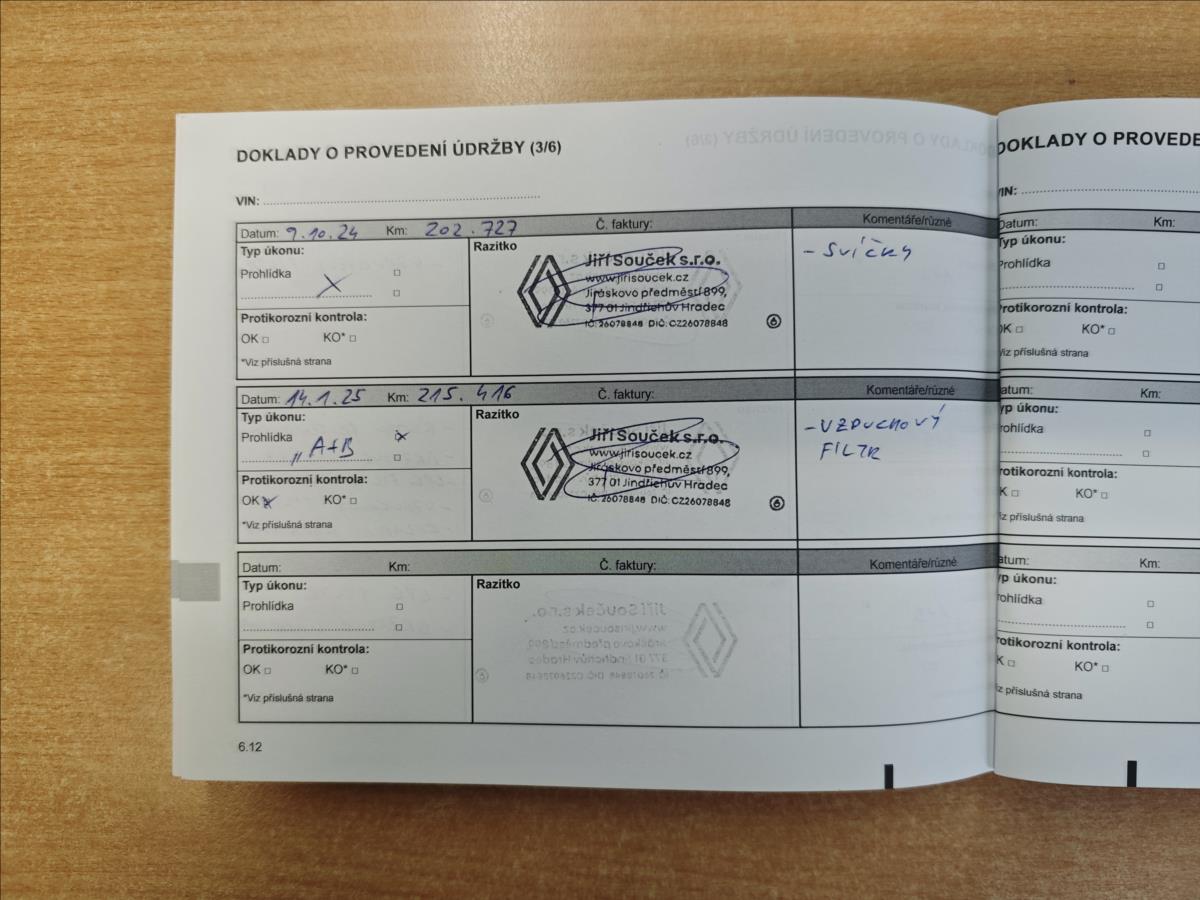 DOKLADY O PROVEDENÍ ÚDRŽBY (3/6)
VIN:
Datum: 9.10.24 Km: 202.727 Č. faktury: Komentáře/různé
Typ úkonu: Razítko
Prohlídka X □
□
Protikorozní kontrola:
OK □ KO* □
*Viz příslušná strana
Jiří Souček s.r.o.
www.jirisoucek.cz
Jiráskovo předměstí 899,
377 01 Jindřichův Hradec
IČ: 26078848 DIČ: CZ26078848
6
- SVÍČKY
Datum: 14.1.25 Km: 215.416 Č. faktury: Komentáře/různé
Typ úkonu: Razítko
Prohlídka X
„A+B □
Protikorozní kontrola:
OK X KO* □
*Viz příslušná strana
Jiří Souček s.r.o.
www.jirisoucek.cz
Jiráskovo předměstí 899,
377 01 Jindřichův Hradec
IČ: 26078848 DIČ: CZ26078848
6
- VZDUCHOVÝ
FILTR
Datum: Km: Č. faktury: Komentáře/různé
Typ úkonu: Razítko
Prohlídka □
□
Protikorozní kontrola:
OK □ KO* □
*Viz příslušná strana
6.12
DOKLADY O PROVEDE
VIN:
Datum: Km:
Typ úkonu:
Prohlídka □
□
Protikorozní kontrola:
OK □ KO* □
*Viz příslušná strana
Datum: Km:
Typ úkonu:
rohlídka □
□
Protikorozní kontrola:
K □ KO* □
iz příslušná strana
atum: Km:
yp úkonu:
rohlídka □
□
rotikorozní kontrola:
K □ KO* □
iz příslušná strana